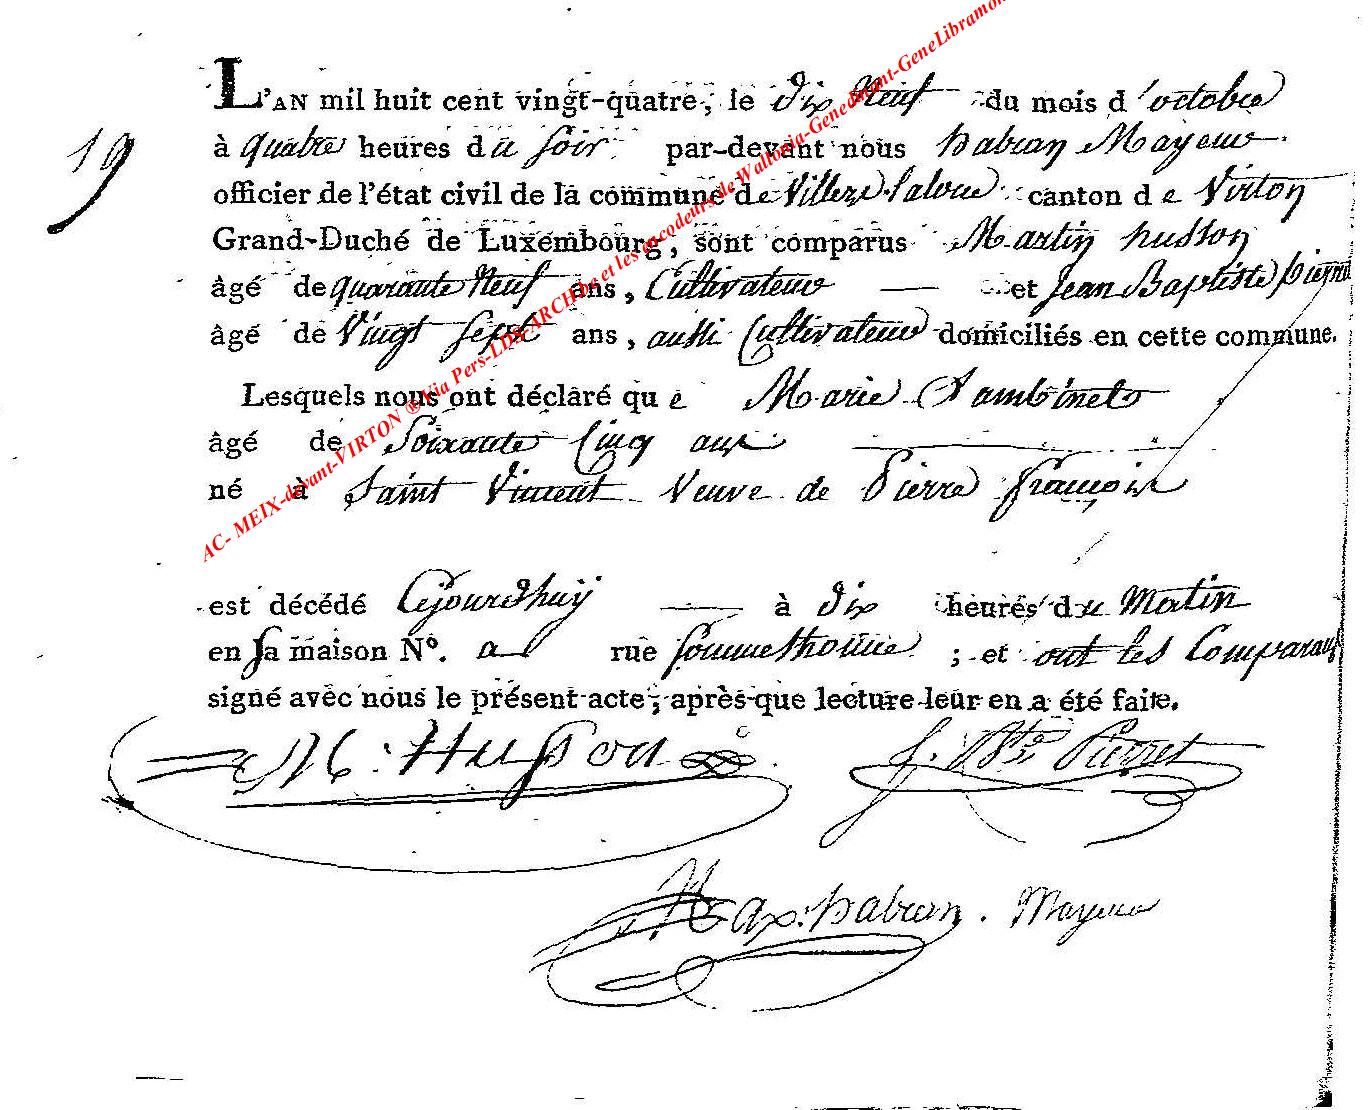 L'AN mil huit cent vingt-quatre, le dix Neuf du mois d'octobre
19
à quatre heures du soir par-devant nous habran Mayeur
officier de l'état civil de la commune de Villers-laloue canton de Virton
Grand-Duché de Luxembourg, sont comparus Martin husson
âgé de quarante Neuf ans, Cultivateur et Jean Baptiste pierret
âgé de Vingt Sept ans, aussi Cultivateur domiciliés en cette commune.
Lesquels nous ont déclaré que Marie
âgé de Soixante Cinq ans
né à Saint Vincent Veuve de Pierre françois
est décédé Cejourdhuy à dix heures du Matin
en sa maison N°. a rue ; et ont les Comparans
signé avec nous le présent acte, après que lecture leur en a été faite.
M. Husson J. Bte Pierret
habran. Mayeur
AC- MEIX-devant-VIRTON ® Via Pers-LDS-ARCH.be et les encodeurs de Wallonia-Genedinant-GeneLibramon